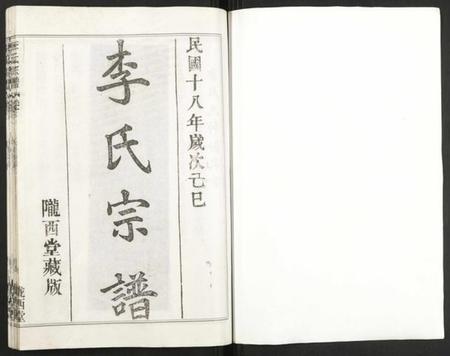 民國十八年歲次己巳
李氏宗譜
隴西堂藏版
隴西堂